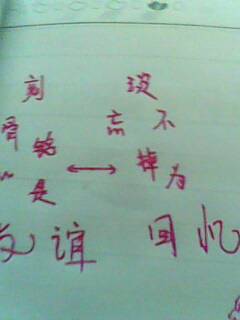 刻 没
忘 不
骨 铭 ↔ 掉 为
是
谊 回忆